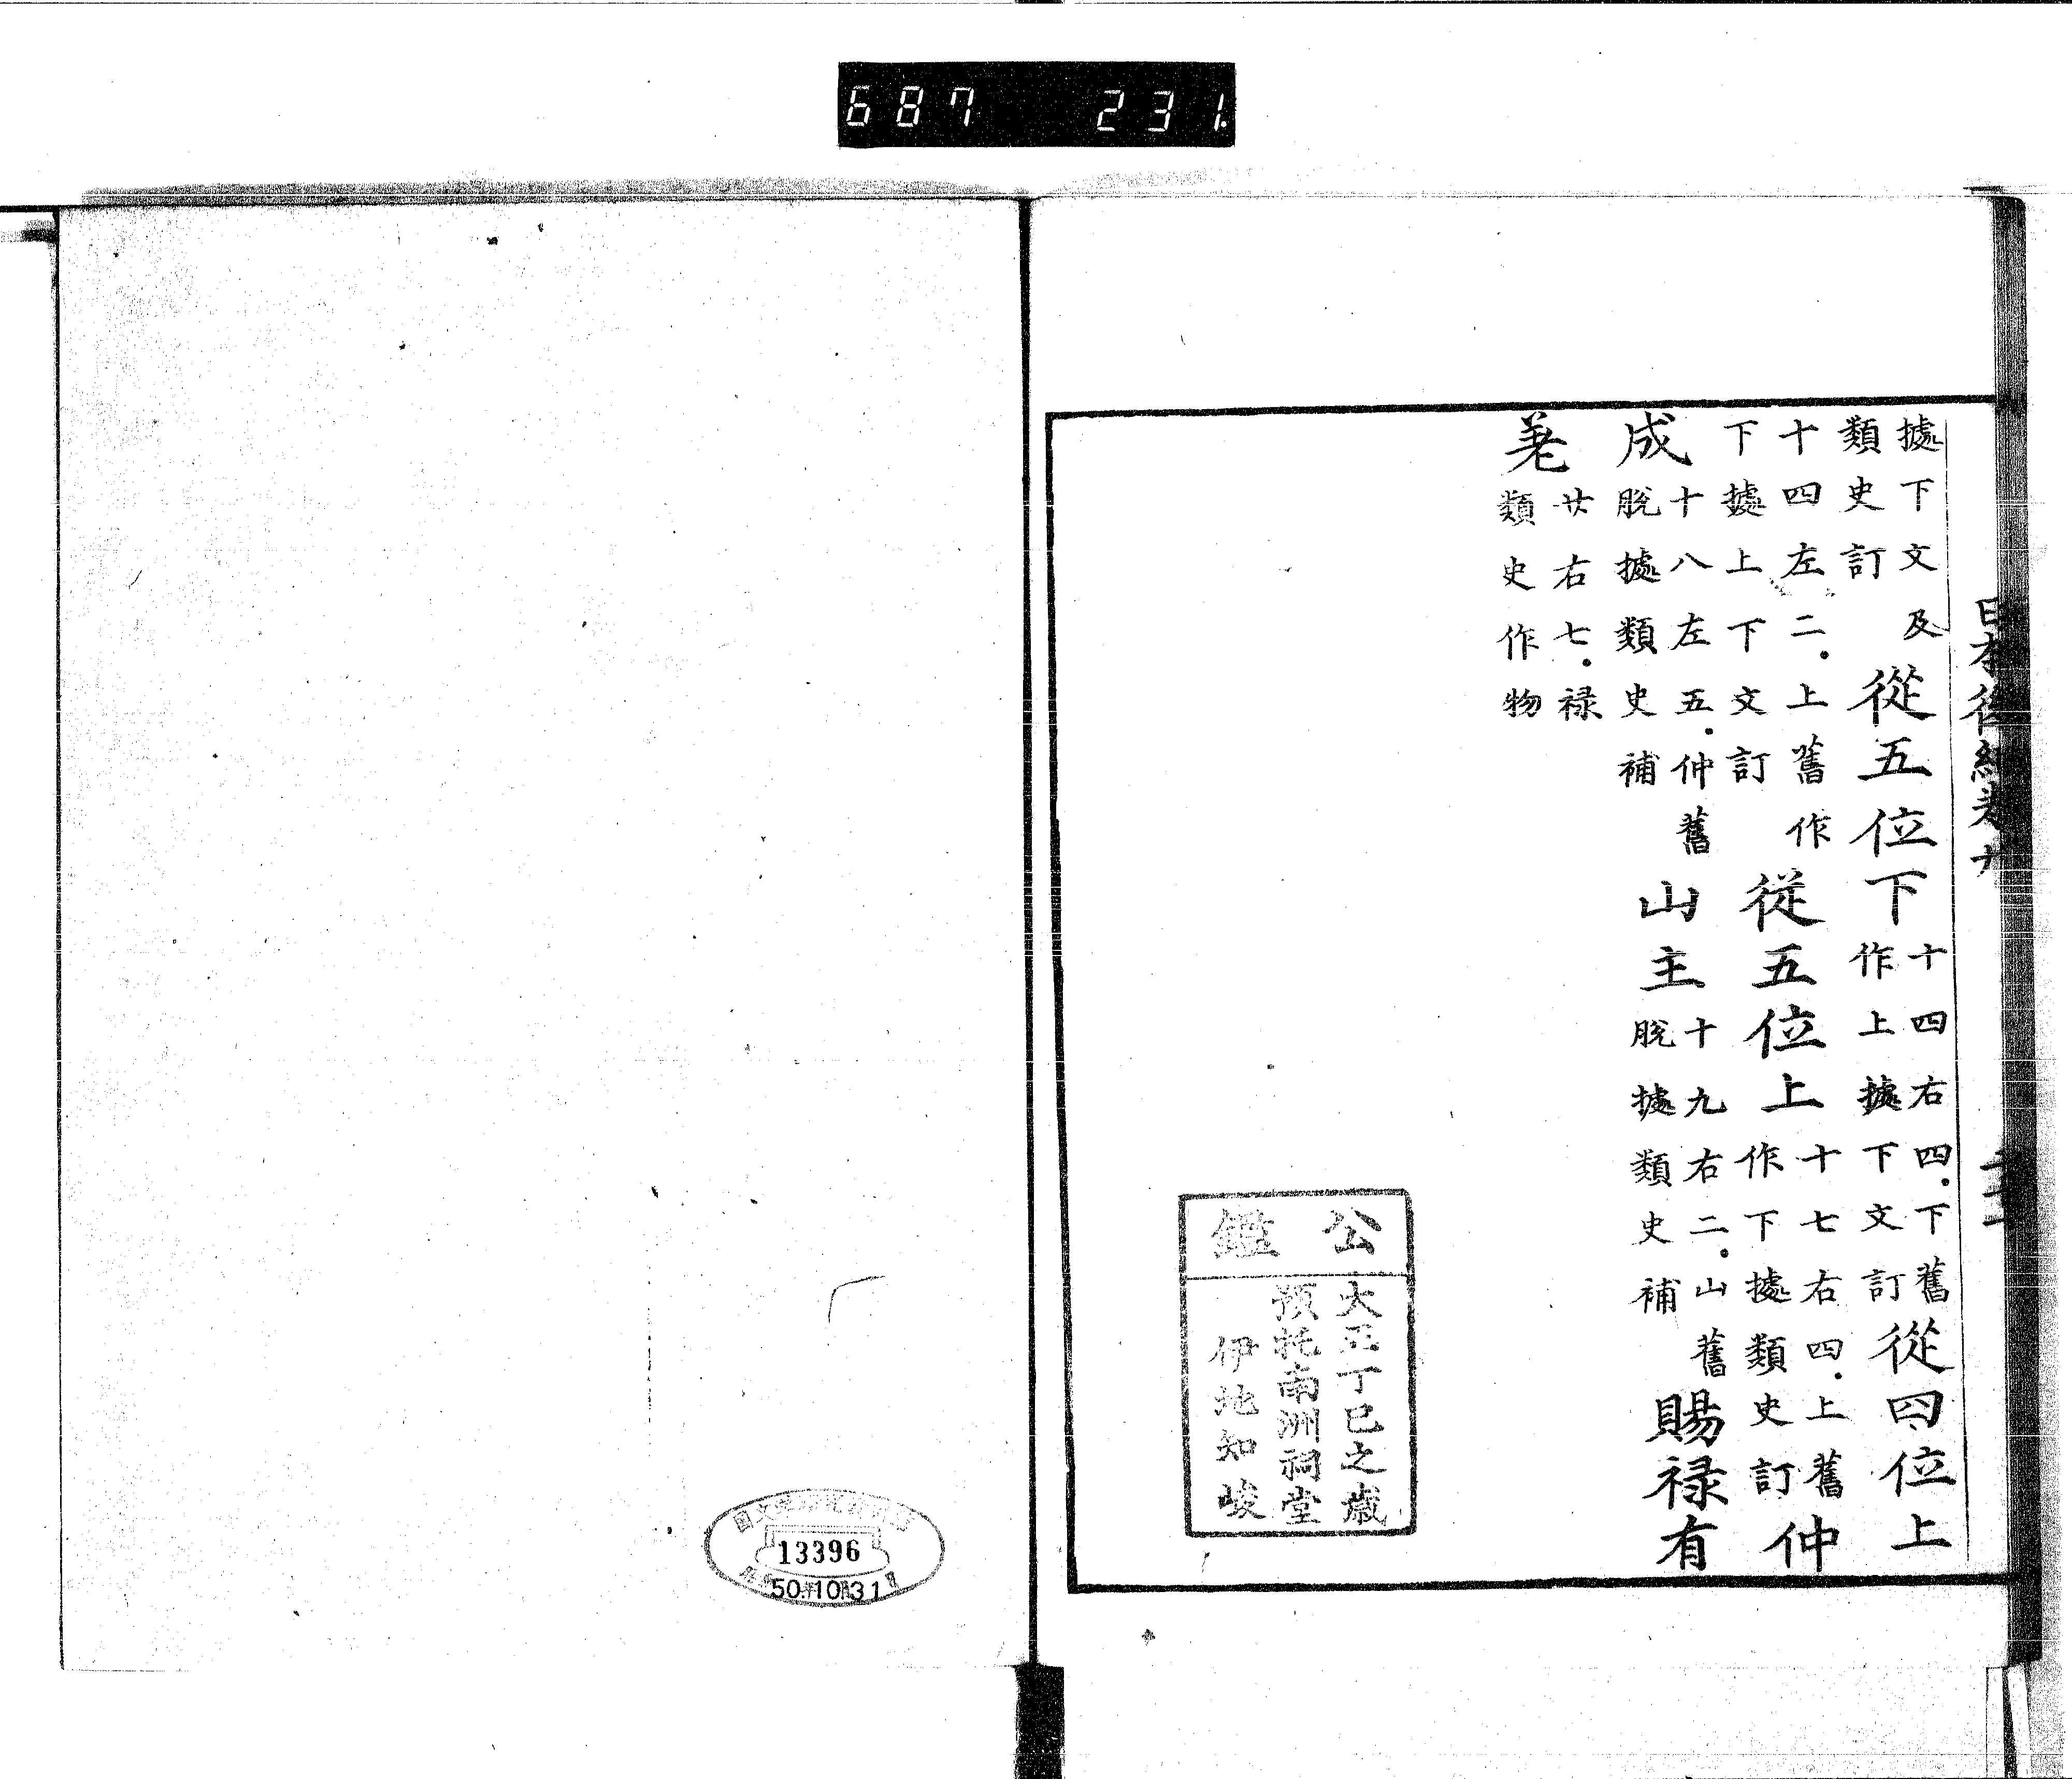 687 231.
日本後紀卷
據下文及
類史訂
從五位下
十四右四.下舊
作上據下文訂
從四位上
十四左二.上舊作
下據上下文訂
從五位上
十七右四.上舊
作下據類史訂
仲
成
十八左五.仲舊
脫據類史補
山主
十九右二.山舊
脫據類史補
賜祿有
差
廿右七.祿
類史作物
公鑑
大正丁巳之歲
預托南洲祠堂
伊地知峻
13396
50.10.31